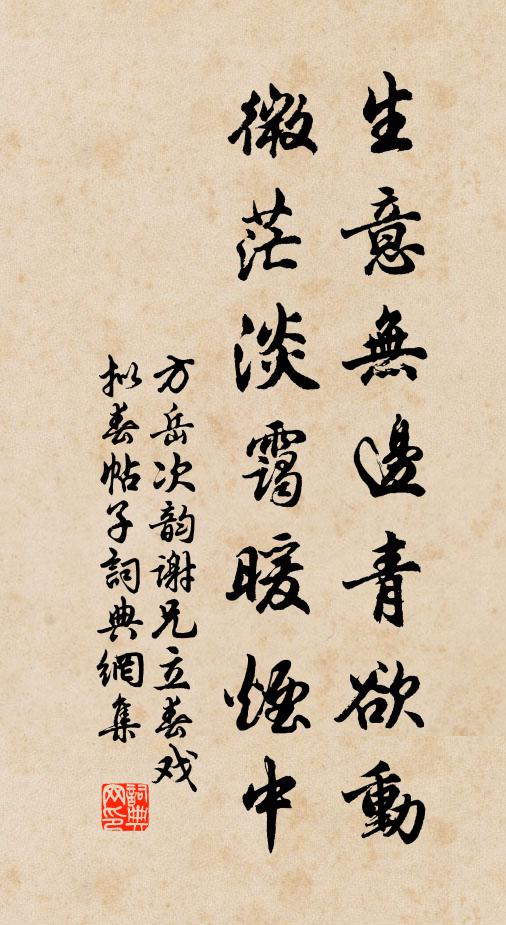 生意無邊青欲動
微茫淡靄暖煙中
方岳次韵谢兄立春戏
拟春帖子詞典網集
詞典网印